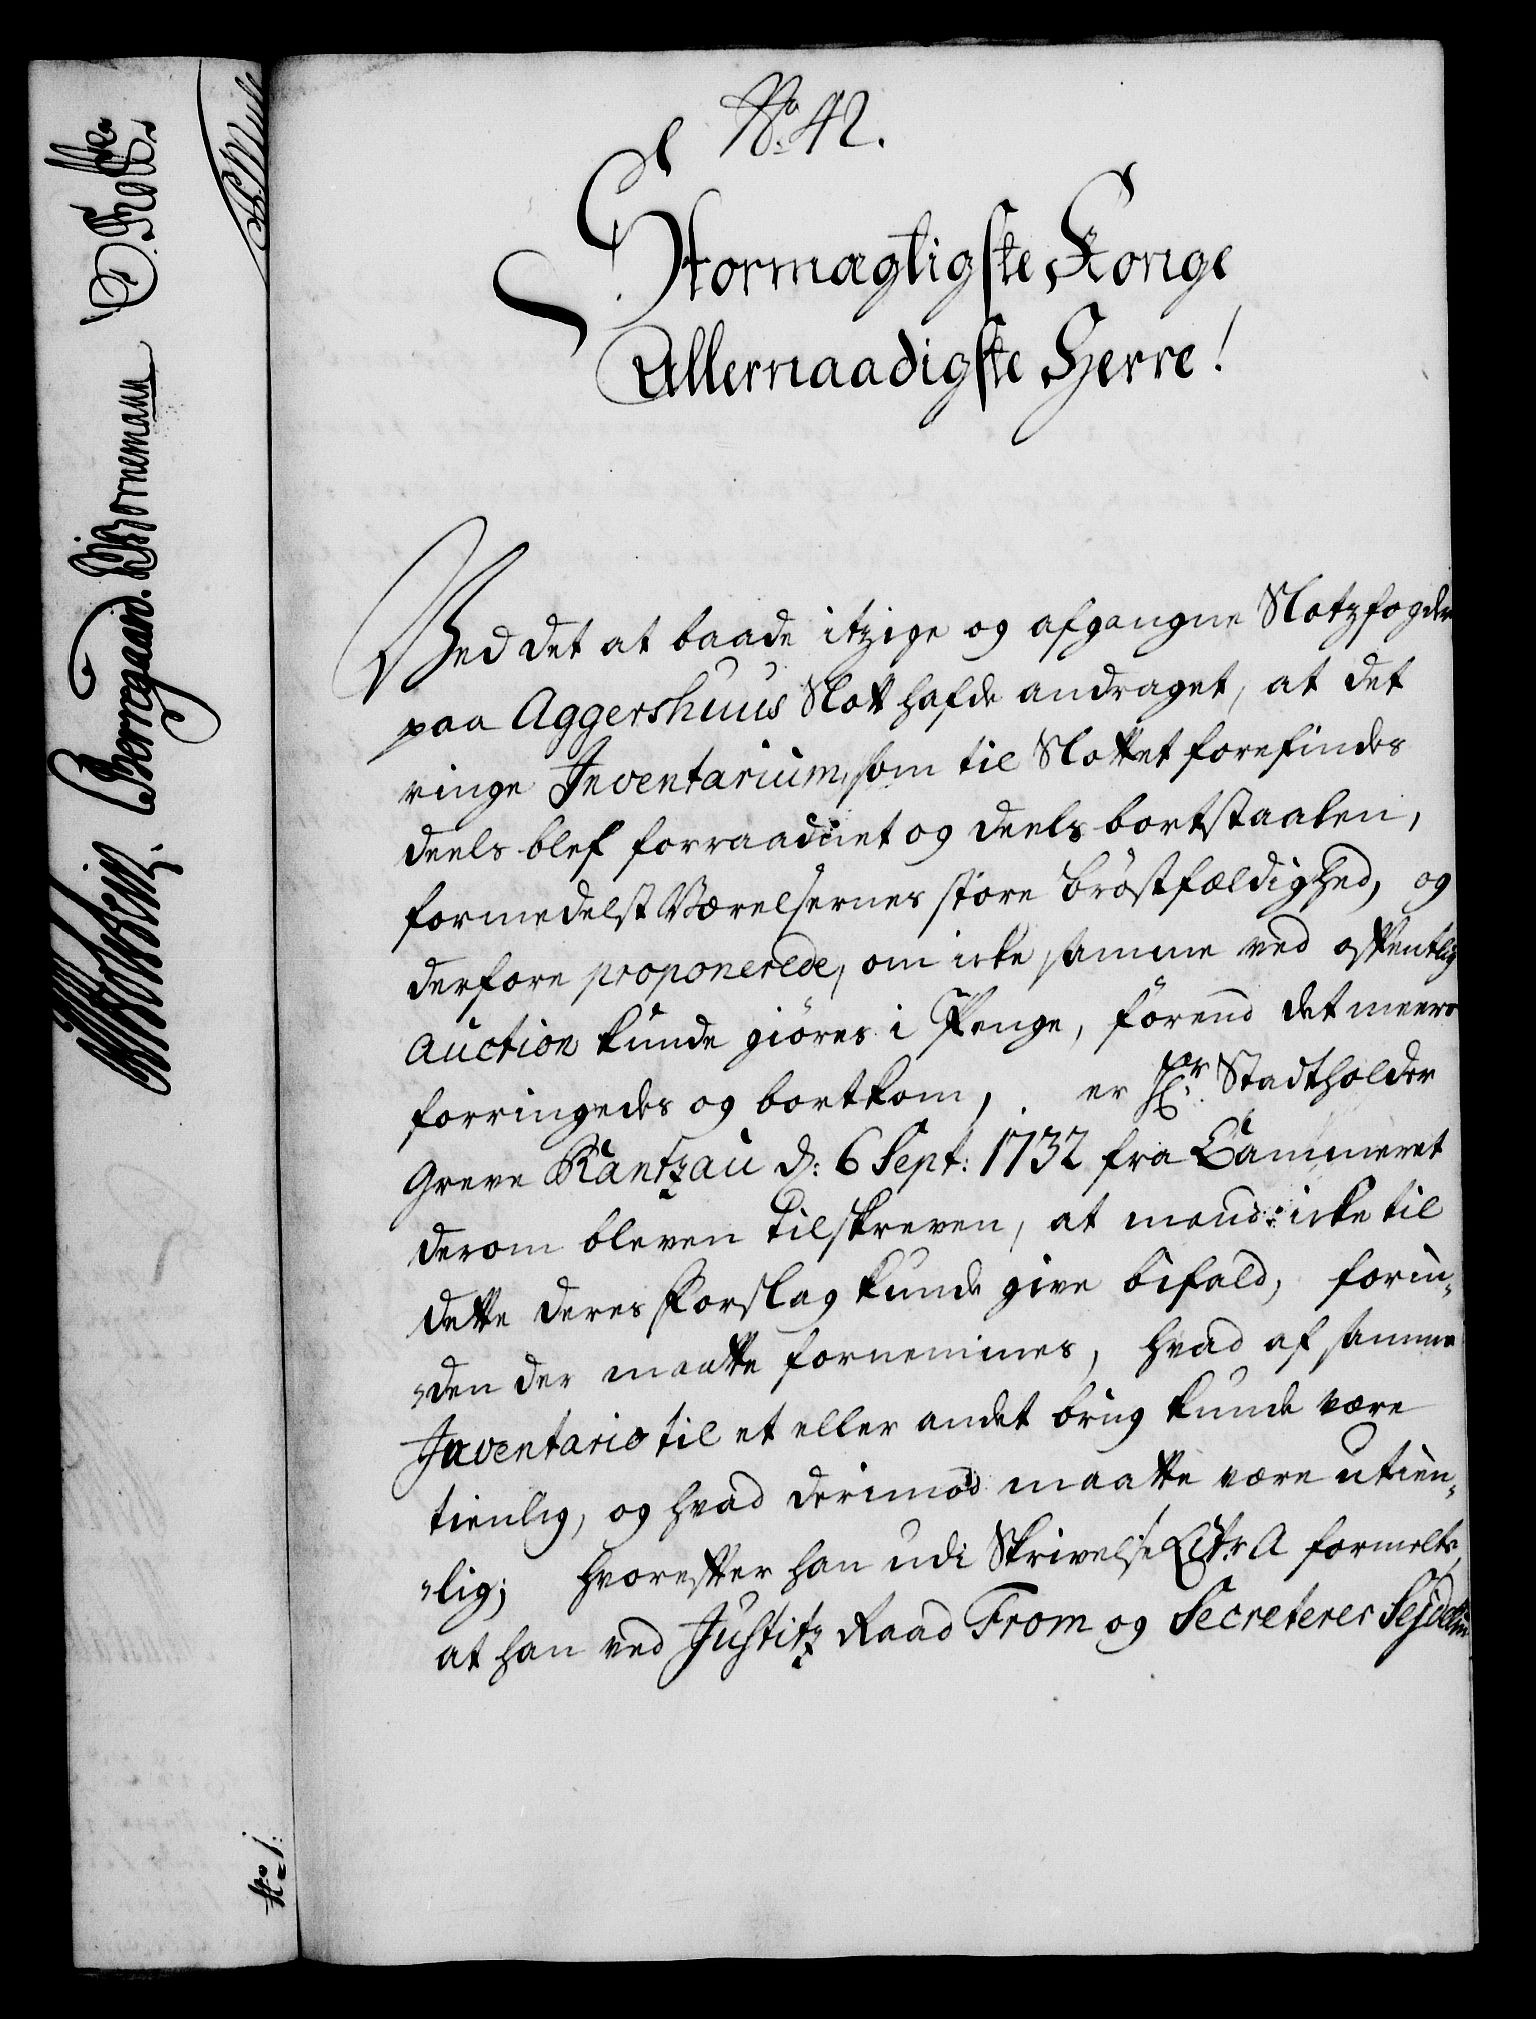 No. 42.
Stormægtigste Konge
Allernaadigste Herre!
Ved det at baade itzige og afgangne Slotzfogder
paa Aggershuus Slott hafde andraget, at det
ringe Inventarium, som til Slottet forefindes
deels blef forraadnet og deels bortstaalen,
formedelst Værelsernes store brøstfældighed, og
derfore proponerede, om icke samme ved offentlig
Auction kunde giøres i Penge, førend det meere
forringedes og bortkom, er Hr. Stadtholder
Greve Rantzau d: 6 Sept: 1732 fra Cammeret
derom bleven tilskreven, at mand icke til
dette deres Forslag kunde give bifald, forin-
"den der maatte fornemmes, hvad af samme
Inventario til et eller andet brug kunde være
tienlig, og hvad derimod maatte være utien-
"lig; hvorefter han udi Skrivelse Litr. A formelte,
at han ved Justitz Raad From og Secreterer
Bornemann
No. 1.